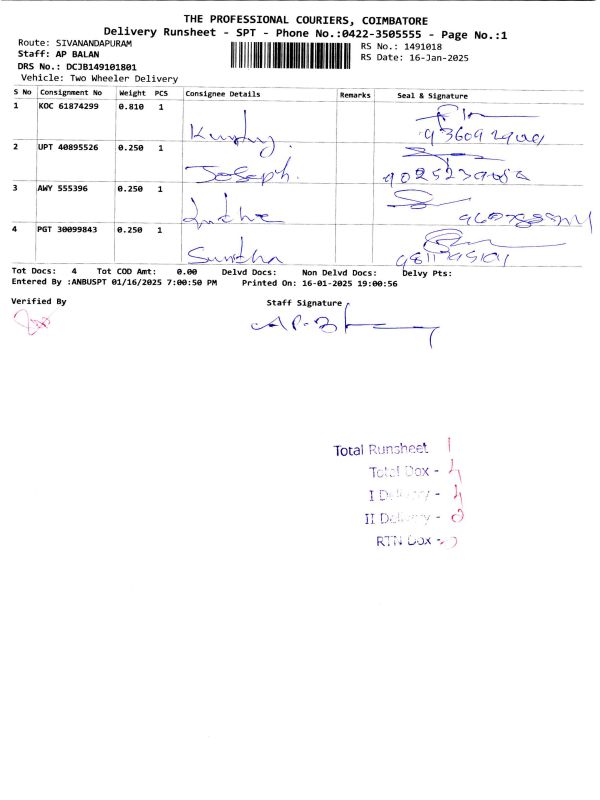 THE PROFESSIONAL COURIERS, COIMBATORE
Delivery Runsheet - SPT - Phone No.:0422-3505555 - Page No.:1
Route: SIVANANDAPURAM
Staff: AP BALAN
DRS No.: DCJB149101801
Vehicle: Two Wheeler Delivery
RS No.: 1491018
RS Date: 16-Jan-2025
S No Consignment No Weight PCS Consignee Details Remarks Seal & Signature
1 KOC 61874299 0.810 1
2 UPT 40895526 0.250 1 Joseph.
3 AWY 555396 0.250 1
4 PGT 30099843 0.250 1
Tot Docs: 4 Tot COD Amt: 0.00 Delvd Docs: Non Delvd Docs: Delvy Pts:
Entered By :ANBUSPT 01/16/2025 7:00:50 PM Printed On: 16-01-2025 19:00:56
Verified By Staff Signature
Total Runsheet 1
Total Box - 4
I Delivery - 4
II Delivery - 0
RTN Box -